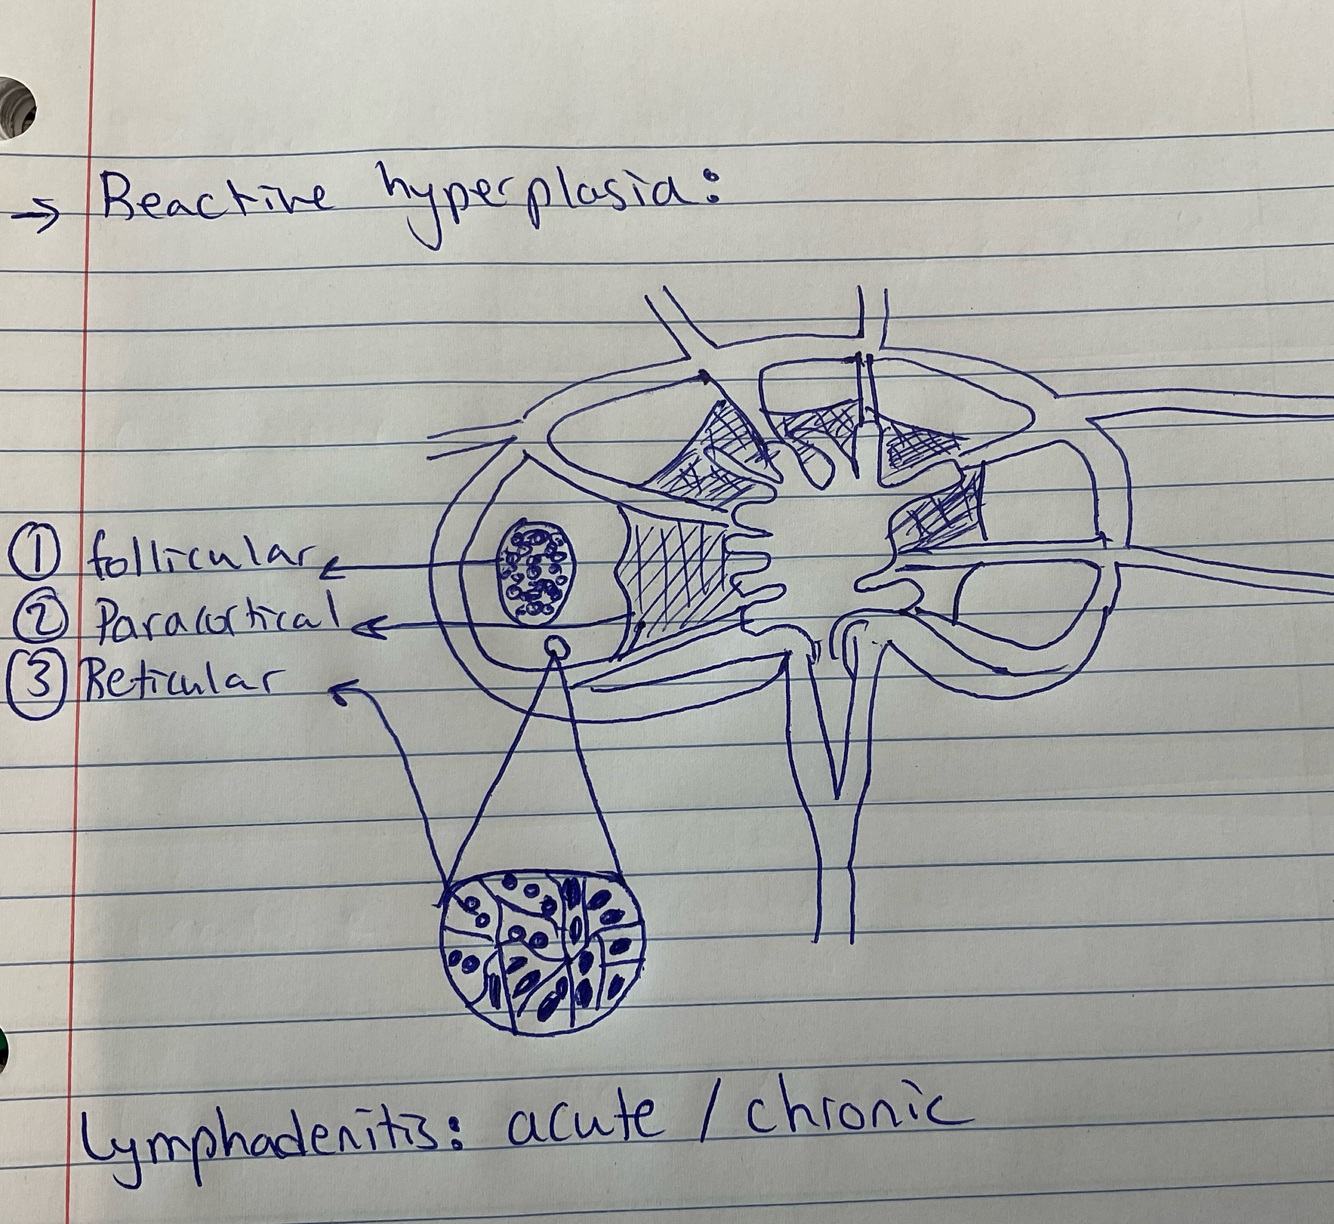 → Reactive hyperplasia:
① follicular
② Paracortical
③ Reticular
Lymphadenitis: acute / chronic